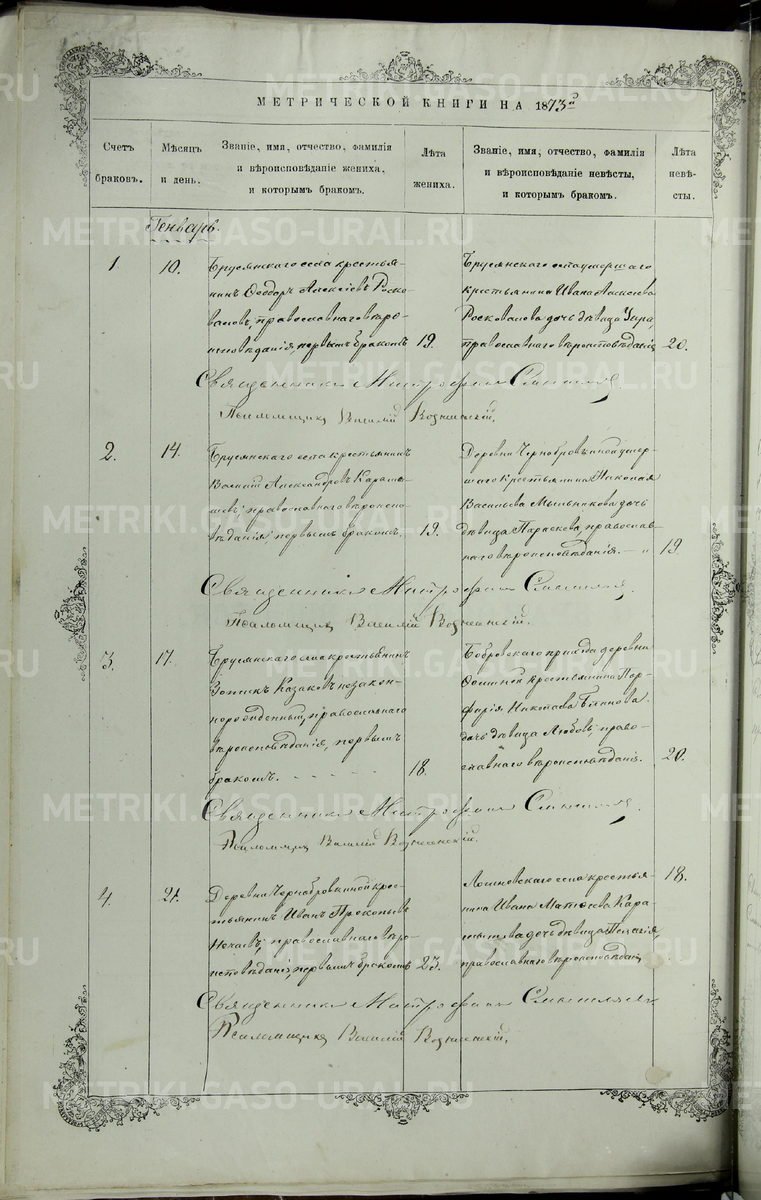 МЕТРИЧЕСКОЙ КНИГИ НА 1873 г.
Счетъ браковъ.
Мѣсяцъ и день.
Званіе, имя, отчество, фамилія
и вѣроисповѣданіе жениха,
и которымъ бракомъ.
Лѣта жениха.
Званіе, имя, отчество, фамилія
и вѣроисповѣданіе невѣсты,
и которымъ бракомъ.
Лѣта невѣ-
сты.
Генварь.
1
10.
Брусянскаго села крестья-
нинъ Ѳеодоръ Алексѣевъ Роско-
валовъ, православнаго вѣро-
исповѣданія, первымъ бракомъ
19.
Брусянскаго села умершаго
крестьянина Ивана Алексѣева
Росковалова дочь дѣвица
православнаго вѣроисповѣданія
20.
Священникъ Митрофанъ
Псаломщикъ Василій Вознесенскій.
2.
14.
Брусянскаго села крестьянинъ
Василій Александровъ Карам-
шевъ, православнаго вѣроиспо-
вѣданія, первымъ бракомъ.
19.
Деревни Чернобровкиной умер-
шаго крестьянина Николая
Васильева Мыльникова дочь
дѣвица Параскева, православ-
наго вѣроисповѣданія.
19.
Священникъ Митрофанъ
Псаломщикъ Василій Вознесенскій.
3.
17.
Брусянскаго села крестьянинъ
Казаковъ незакон-
норожденный, православнаго
вѣроисповѣданія, первымъ
бракомъ.
18.
Бобровскаго прихода деревни
крестьянина Пор-
фирія Николаева
дочь дѣвица Любовь, право-
славнаго вѣроисповѣданія.
20.
Священникъ Митрофанъ
Псаломщикъ Василій Вознесенскій.
4.
21.
Деревни Чернобровкиной крес-
тьянинъ Иванъ Прокопьевъ
православнаго вѣро-
исповѣданія, первымъ бракомъ
23.
села крестья-
нина Ивана Матѳеева Кара-
мышева дочь дѣвица Пелагія,
православнаго вѣроисповѣданія
18.
Священникъ Митрофанъ
Псаломщикъ Василій Вознесенскій.
METRIKI.GASO-URAL.RU